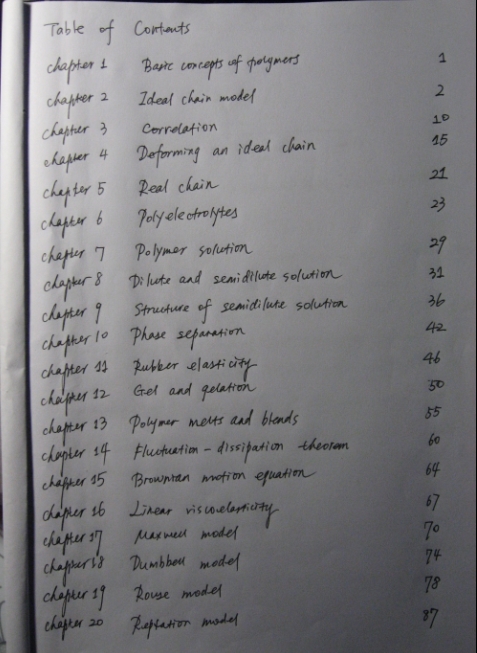 Table of Contents
chapter 1 Basic concepts of polymers 1
chapter 2 Ideal chain model 2
chapter 3 Correlation 10
chapter 4 Deforming an ideal chain 15
chapter 5 Real chain 21
chapter 6 Polyelectrolytes 23
chapter 7 Polymer solution 29
chapter 8 Dilute and semidilute solution 31
chapter 9 Structure of semidilute solution 36
chapter 10 Phase separation 42
chapter 11 Rubber elasticity 46
chapter 12 Gel and gelation 50
chapter 13 Polymer melts and blends 55
chapter 14 Fluctuation - dissipation theorem 60
chapter 15 Brownian motion equation 64
chapter 16 Linear viscoelasticity 67
chapter 17 Maxwell model 70
chapter 18 Dumbbell model 74
chapter 19 Rouse model 78
chapter 20 Reptation model 87